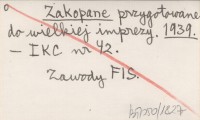 Zakopane przygotowane
do wielkiej imprezy. 1939.
– IKC nr 42.
Zawody FIS.